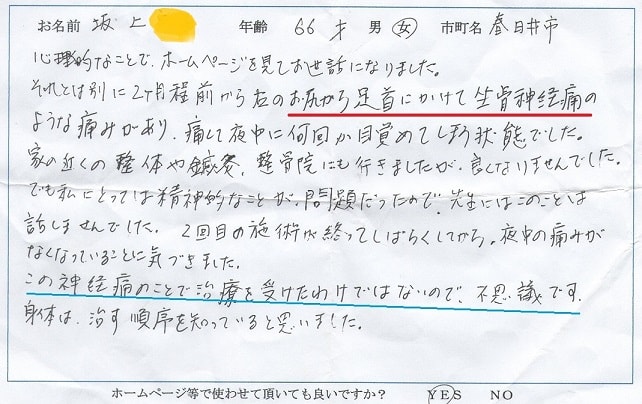 お名前 坂上 年齢 66才 男 女 市町名 春日井市
心理的なことで、ホームページを見てお世話になりました。
それとは別に2ヶ月程前から右のお尻から足首にかけて坐骨神経痛の
ような痛みがあり、痛くて夜中に何回か目覚めてしまう状態でした。
家の近くの整体や鍼灸、整骨院にも行きましたが、良くなりませんでした。
でも私にとっては精神的なことが、問題だったので、先生にはこのことは
話しませんでした。 2回目の施術が終ってしばらくしてから、夜中の痛みが
なくなっていることに気づきました。
この神経痛のことで治療を受けたわけではないので、不思議です。
身体は、治す順序を知っていると思いました。
ホームページ等で使わせて頂いても良いですか? YES NO